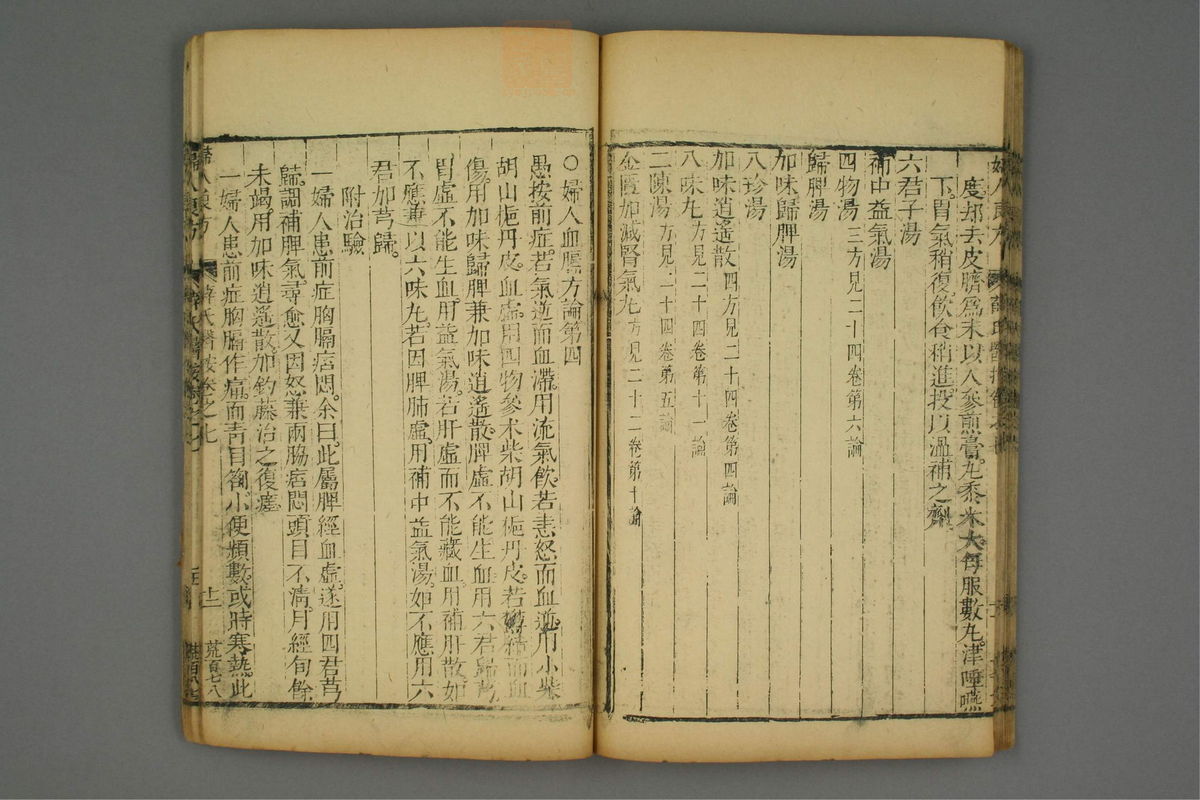 婦人良方
度却去皮臍爲末以人參煎膏丸黍米大每服數丸津唾嚥
下胃氣稍復飲食稍進投以溫補之劑
六君子湯
補中益氣湯
四物湯三方見二十四卷第六論
歸脾湯
加味歸脾湯
八珍湯
加味逍遙散四方見二十四卷第四論
八味丸方見二十四卷第十一論
二陳湯方見二十四卷第五論
金匱加減腎氣丸方見二十二卷第十論
〇婦人血膈方論第四
愚按前症若氣逆而血滯用流氣飲若恚怒而血逆用小柴
胡山梔丹皮血虛用四物參朮柴胡山梔丹皮若 而血
傷用加味歸脾兼加味逍遙散脾虛不能生血用六君歸芎
胃虛不能生血用益氣湯若肝虛而不能藏血用補肝散如
不應兼以六味丸若因脾肺虛用補中益氣湯如不應用六
君加芎歸
附治驗
一婦人患前症胸膈痞悶余曰此屬脾經血虛遂用四君芎
歸調補脾氣尋愈又因怒兼兩脇痞悶頭目不清月經旬餘
未竭用加味逍遙散加釣藤治之復瘥
一婦人患前症胸膈作痛面青目劄小便頻數或時寒熱此
婦人良方 薛氏醫按卷之七 十二 荒百七八